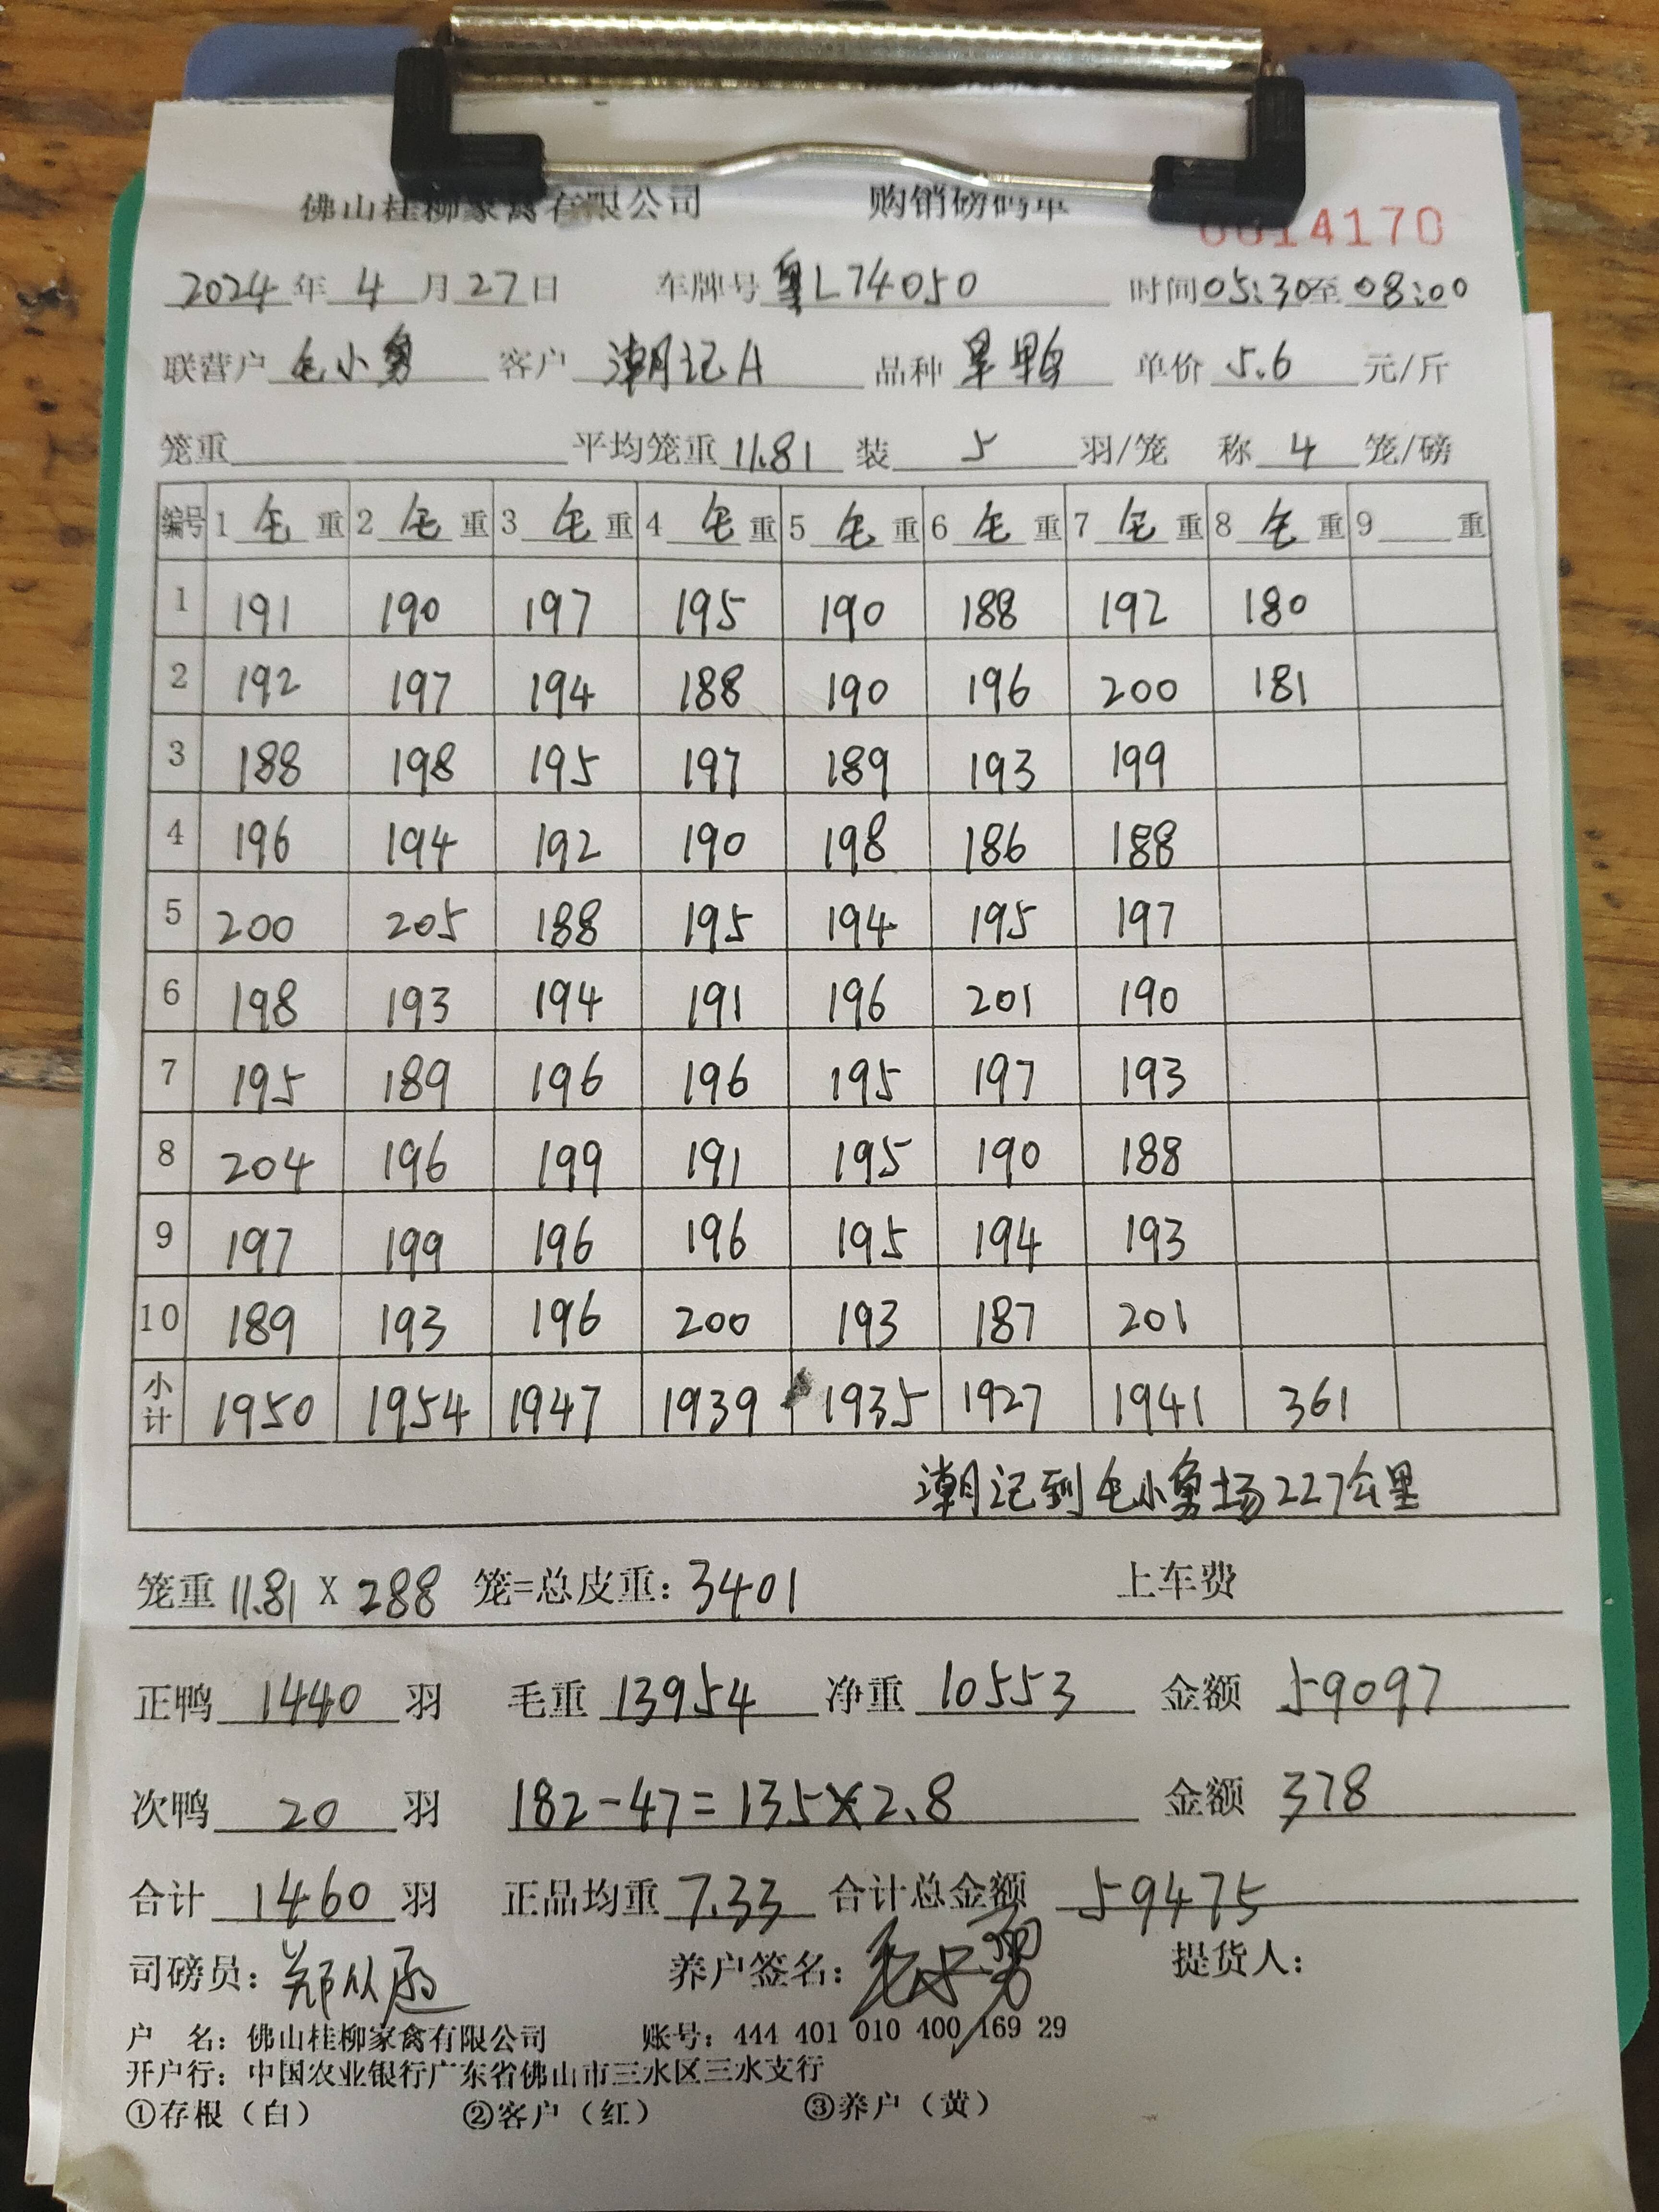 佛山桂柳家禽有限公司 购销磅码单
0014170
2024年4月27日 车牌号粤L74050 时间05:30至08:00
联营户毛小勇 客户潮记A 品种旱鸭 单价5.6元/斤
笼重 平均笼重11.81 装5羽/笼 称4笼/磅
编号 1毛重 2毛重 3毛重 4毛重 5毛重 6毛重 7毛重 8毛重 9重
1 191 190 197 195 190 188 192 180
2 192 197 194 188 190 196 200 181
3 188 198 195 197 189 193 199
4 196 194 192 190 198 186 188
5 200 205 188 195 194 195 197
6 198 193 194 191 196 201 190
7 195 189 196 196 195 197 193
8 204 196 199 191 195 190 188
9 197 199 196 196 195 194 193
10 189 193 196 200 193 187 201
小计 1950 1954 1947 1939 1935 1927 1941 361
潮记到毛小勇场227公里
笼重11.81X288笼=总皮重:3401 上车费
正鸭1440羽 毛重13954 净重10553 金额59097
次鸭20羽 182-47=135×2.8 金额378
合计1460羽 正品均重7.33 合计总金额59475
司磅员: 养户签名:毛小勇 提货人:
户 名:佛山桂柳家禽有限公司 账号:444 401 010 400 169 29
开户行:中国农业银行广东省佛山市三水区三水支行
①存根(白) ②客户(红) ③养户(黄)